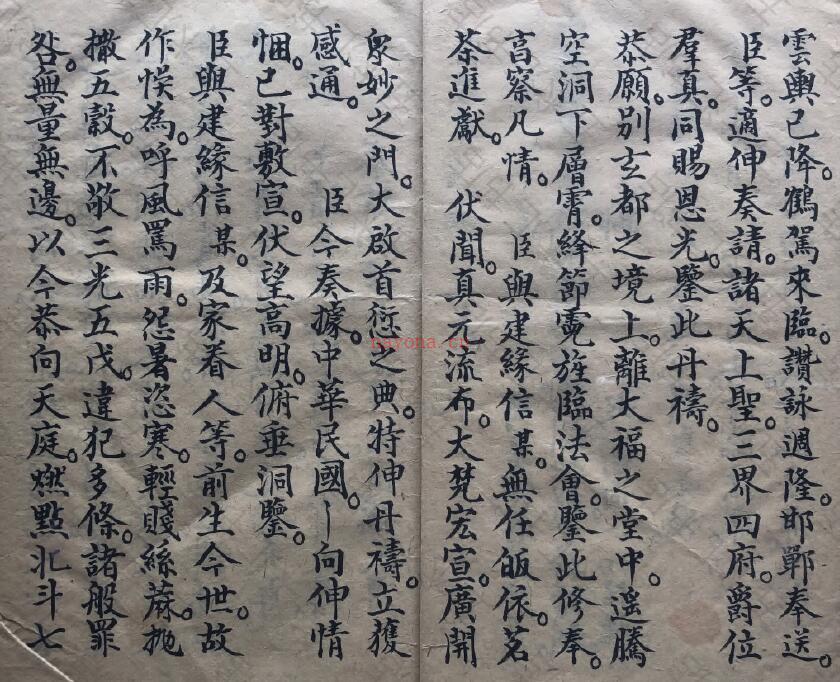 雲輿已降。鶴駕來臨。讚詠週隆。邯鄲奉送。
臣等。適伸奏請。諸天上聖。三界四府。爵位
羣真。同賜恩光。鑒此丹禱。
恭願。別玄都之境上。離大福之堂中。遥騰
空洞下層霄。絳節霓旌臨法會。鑒此修奉。
亯察凡情。 臣與建緣信某。無任皈依。茗
茶進獻。 伏聞。真元流布。大梵宏宣。廣開
衆妙之門。大啟首愆之典。特伸丹禱。立獲
感通。 臣今奏據。中華民國。〡向伸情
悃。已對敷宣。伏望高明。俯垂洞鑒。
臣與建緣信某。及家眷人等。前生今世。故
作悞為。呼風罵雨。怨暑恣寒。輕賤絲蔴。抛
撒五穀。不敬三光五戊。違犯多條。諸般罪
咎。無量無邊。以今恭向天庭。燃點北斗七
naxona.cn